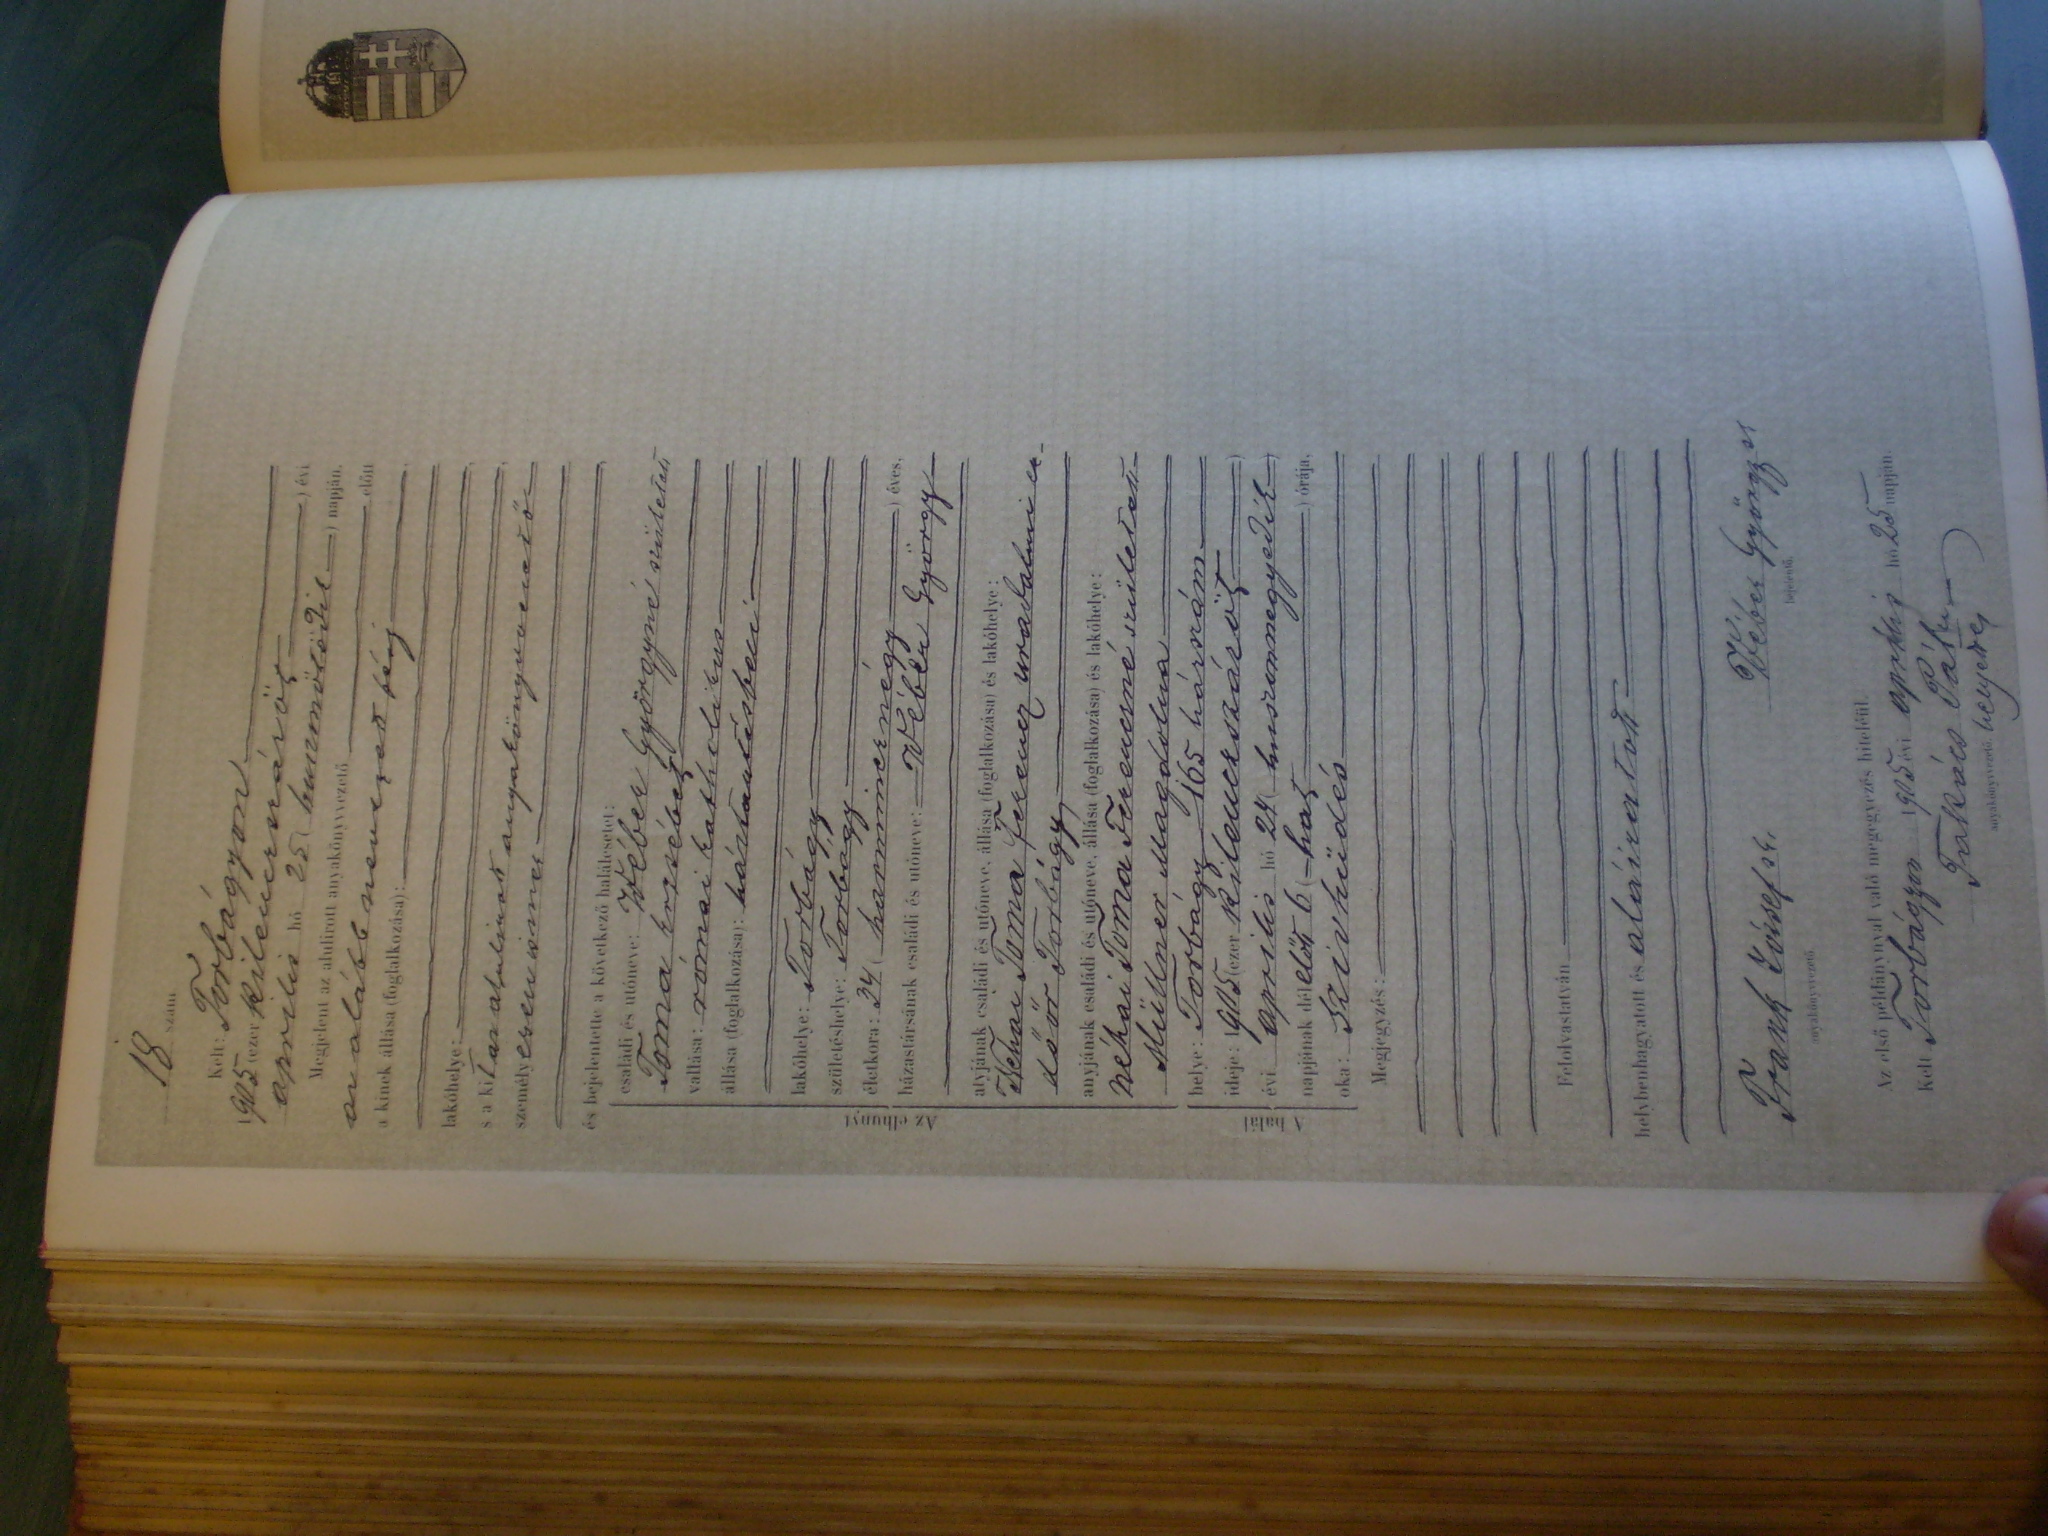 18 szám
Kelt: Torbágyon
1905 (ezer kilenczszázöt) évi
április hó 25 (huszonötödik) napján.
Megjelent az alulirott anyakönyvvezető előtt
az alább nevezett fényi
a kinek állása (foglalkozása):
lakóhelye:
s a kit az alulirott anyakönyvvezető
személyesen ismer
és bejelentette a következő halálesetet:
Az elhunyt
családi és utóneve: Wéber Györgyné született
Toma Erzsébet
vallása: római katholikus
állása (foglalkozása): háztartásbeli
lakóhelye: Torbágy
születéshelye: Torbágy
életkora: 34 (harmincznégy) éves,
házastársának családi és utóneve: Wéber György
atyjának családi és utóneve, állása (foglalkozása) és lakóhelye:
Néhai Toma Ferencz uradalmi er-
dőőr Torbágy
anyjának családi és utóneve, állása (foglalkozása) és lakóhelye:
néhai Toma Ferenczné született
Müllner Magdolna
A halál
helye: Torbágy 165 házszám
ideje: 1905 (ezer kilenczszázöt)
évi április hó 24 (huszonnegyedik)
napjának dél előtt 6 (hat) órája,
oka: Szívhűdés
Megjegyzés:
Felolvastatván
helybenhagyatott és aláiratott
Frank József sr. Wéber György
anyakönyvvezető. bejelentő.
Az első példánnyal való megegyezés hiteléül.
Kelt Torbágyon 1905 évi április hó 25 napján.
Takács Pál
anyakönyvvezető helyettes